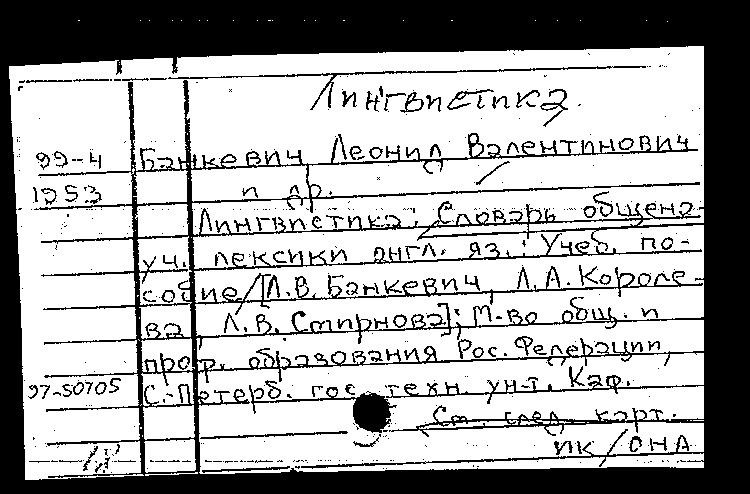 Лингвистика.
99-4 Банкевич, Леонид Валентинович
1253 и др.
Лингвистика: Словарь общена-
уч. лексики англ. яз.: Учеб. по-
собие/[Л.В. Банкевич, Л.А. Короле-
ва, Л.В. Смирнова]; М-во общ. и
проф. образования Рос. Федерации,
97-50705 С.-Петерб. гос. техн. ун-т. Каф.
См. след. карт.
ПК/ОНА
18